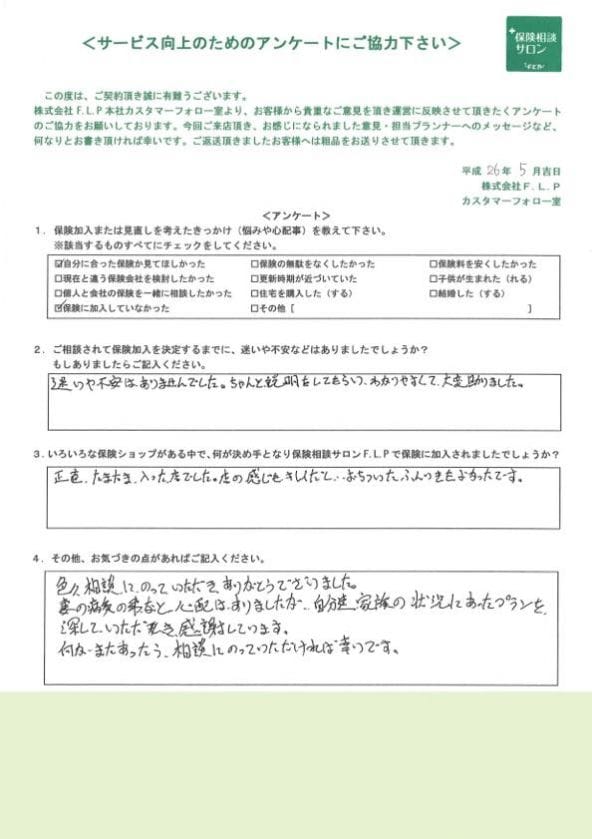 ＜サービス向上のためのアンケートにご協力下さい＞
保険相談
サロン
この度は、ご契約頂き誠に有難うございます。
株式会社F.L.P本社カスタマーフォロー室より、お客様から貴重なご意見を頂き運営に反映させて頂きたくアンケート
のご協力をお願いしております。今回ご来店頂き、お感じになられました意見・担当プランナーへのメッセージなど、
何なりとお書き頂ければ幸いです。ご返送頂きましたお客様へは粗品をお送りさせて頂きます。
平成 26年 5月吉日
株式会社F.L.P
カスタマーフォロー室
＜アンケート＞
1．保険加入または見直しを考えたきっかけ（悩みや心配事）を教えて下さい。
※該当するものすべてにチェックをしてください。
☑自分に合った保険か見てほしかった □保険の無駄をなくしたかった □保険料を安くしたかった
□現在と違う保険会社を検討したかった □更新時期が近づいていた □子供が生まれた（れる）
□個人と会社の保険を一緒に相談したかった □住宅を購入した（する） □結婚した（する）
☑保険に加入していなかった □その他［ ］
2．ご相談されて保険加入を決定するまでに、迷いや不安などはありましたでしょうか？
もしありましたらご記入ください。
迷いや不安はありませんでした。ちゃんと説明をしてもらい、わかりやすくて、大変助りました。
3．いろいろな保険ショップがある中で、何が決め手となり保険相談サロンF.L.Pで保険に加入されましたでしょうか？
正直、たまたま、入った店でした。店の感じもキレイだし、おちついたふんいきもよかったです。
4．その他、お気づきの点があればご記入ください。
色々相談にのっていただき、ありがとうございました。
妻の病気の事など心配はありましたが、自分達家族の状況にあったプランを
探していただき感謝しています。
何かまたあったら、相談にのっていただければ幸いです。